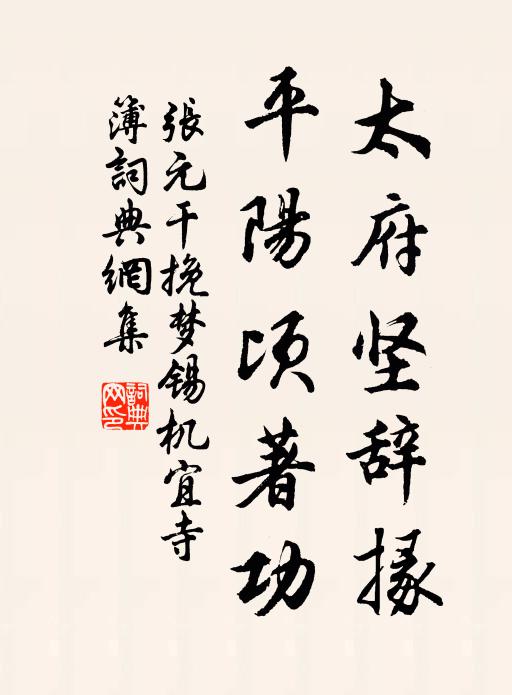 太府坚辞掾
平陽顷著功
張元干挽梦锡机宜寺
簿詞典網集
詞典網印